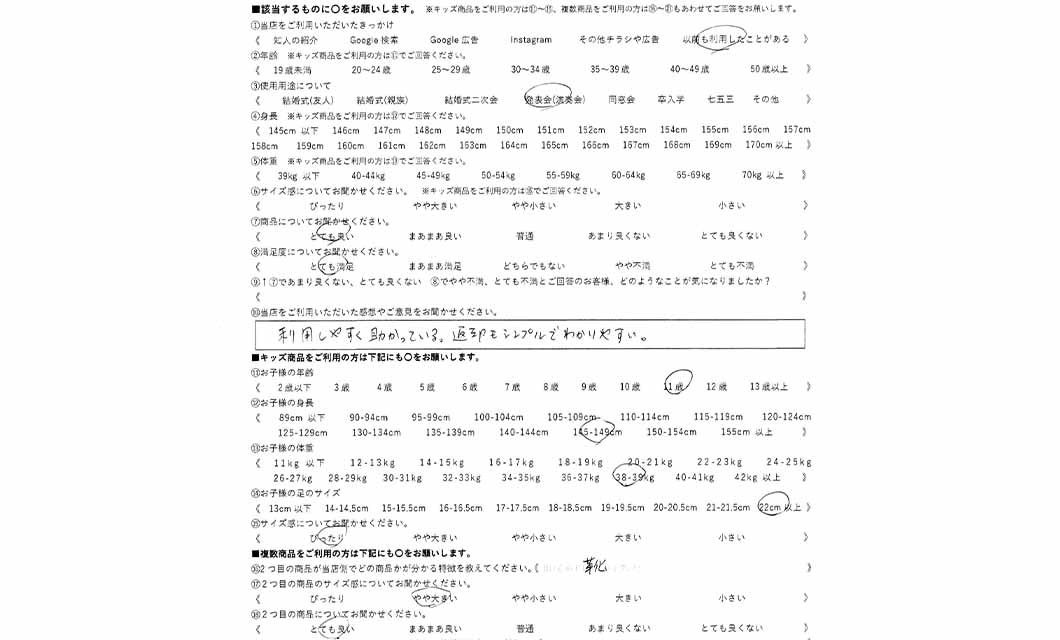 ■該当するものに〇をお願いします。 ※キッズ商品をご利用の方は⑪～⑮、複数商品をご利用の方は⑯～㉑もあわせてご回答をお願いします。
①当店をご利用いただいたきっかけ
《 知人の紹介 Google 検索 Google 広告 Instagram その他チラシや広告 以前も利用したことがある 》
②年齢 ※キッズ商品をご利用の方は⑪でご回答ください。
《 19歳未満 20～24歳 25～29歳 30～34歳 35～39歳 40～49歳 50歳以上 》
③使用用途について
《 結婚式(友人) 結婚式(親族) 結婚式二次会 発表会(演奏会) 同窓会 卒入学 七五三 その他 》
④身長 ※キッズ商品をご利用の方は⑫でご回答ください。
《 145cm 以下 146cm 147cm 148cm 149cm 150cm 151cm 152cm 153cm 154cm 155cm 156cm 157cm
158cm 159cm 160cm 161cm 162cm 163cm 164cm 165cm 166cm 167cm 168cm 169cm 170cm 以上 》
⑤体重 ※キッズ商品をご利用の方は⑬でご回答ください。
《 39kg 以下 40-44kg 45-49kg 50-54kg 55-59kg 60-64kg 65-69kg 70kg 以上 》
⑥サイズ感についてお聞かせください。 ※キッズ商品をご利用の方は⑮でご回答ください。
《 ぴったり やや大きい やや小さい 大きい 小さい 》
⑦商品についてお聞かせください。
《 とても良い まあまあ良い 普通 あまり良くない とても良くない 》
⑧満足度についてお聞かせください。
《 とても満足 まあまあ満足 どちらでもない やや不満 とても不満 》
⑨↑⑦であまり良くない、とても良くない ⑧でやや不満、とても不満とご回答のお客様、どのようなことが気になりましたか？
《 》
⑩当店をご利用いただいた感想やご意見をお聞かせください。
利用しやすく助かっている。返却もシンプルでわかりやすい。
■キッズ商品をご利用の方は下記にも〇をお願いします。
⑪お子様の年齢
《 2歳以下 3歳 4歳 5歳 6歳 7歳 8歳 9歳 10歳 11歳 12歳 13歳以上 》
⑫お子様の身長
《 89cm 以下 90-94cm 95-99cm 100-104cm 105-109cm 110-114cm 115-119cm 120-124cm
125-129cm 130-134cm 135-139cm 140-144cm 145-149cm 150-154cm 155cm 以上 》
⑬お子様の体重
《 11kg 以下 12-13kg 14-15kg 16-17kg 18-19kg 20-21kg 22-23kg 24-25kg
26-27kg 28-29kg 30-31kg 32-33kg 34-35kg 36-37kg 38-39kg 40-41kg 42kg 以上 》
⑭お子様の足のサイズ
《 13cm 以下 14-14.5cm 15-15.5cm 16-16.5cm 17-17.5cm 18-18.5cm 19-19.5cm 20-20.5cm 21-21.5cm 22cm 以上 》
⑮サイズ感についてお聞かせください。
《 ぴったり やや大きい やや小さい 大きい 小さい 》
■複数商品をご利用の方は下記にも〇をお願いします。
⑯2つ目の商品が当店側でどの商品かが分かる特徴を教えてください。《 靴 》
⑰2つ目の商品のサイズ感についてお聞かせください。
《 ぴったり やや大きい やや小さい 大きい 小さい 》
⑱2つ目の商品についてお聞かせください。
《 とても良い まあまあ良い 普通 あまり良くない とても良くない 》